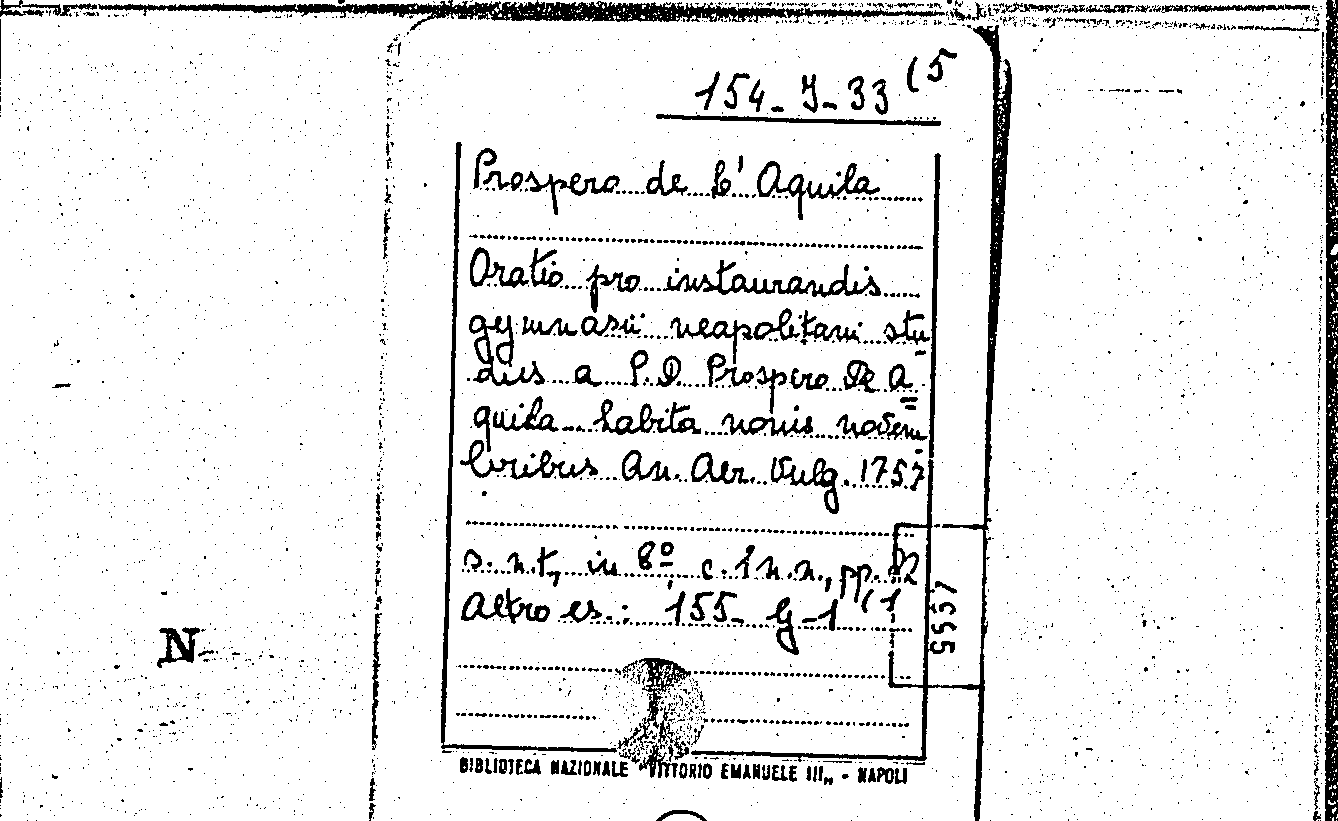 154-J-33 (5
Prospero de L' Aquila
Oratio pro instaurandis
gymnasii neapolitani stu-
diis a P.D. Prospero De A=
quila habita nonis novem-
bribus An. Aer. Vulg. 1757
s.n.t., in 8º, c. 1 n.n., pp.
Altro es.: 155-G-1 (1
5557
N
BIBLIOTECA NAZIONALE "VITTORIO EMANUELE III„ - NAPOLI